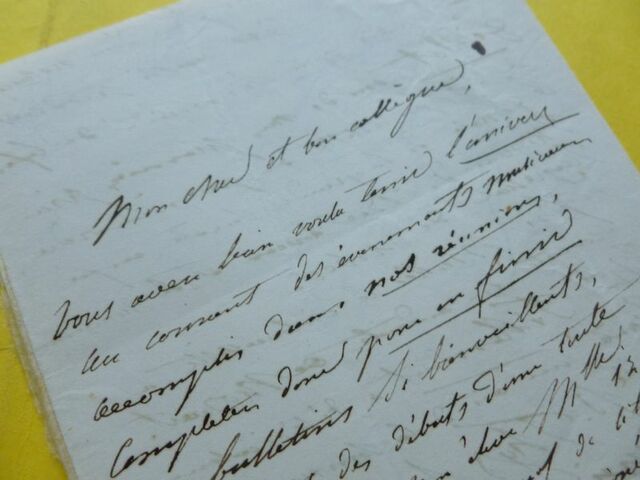 Mon cher et bon collègue,
Vous avez bien voulu tenir l'univers
au courant des événements musicaux
accomplis dans nos réunions,
complétez donc pour en finir
bulletins si bienveillants,
des débuts d'une toute
élève Mlle